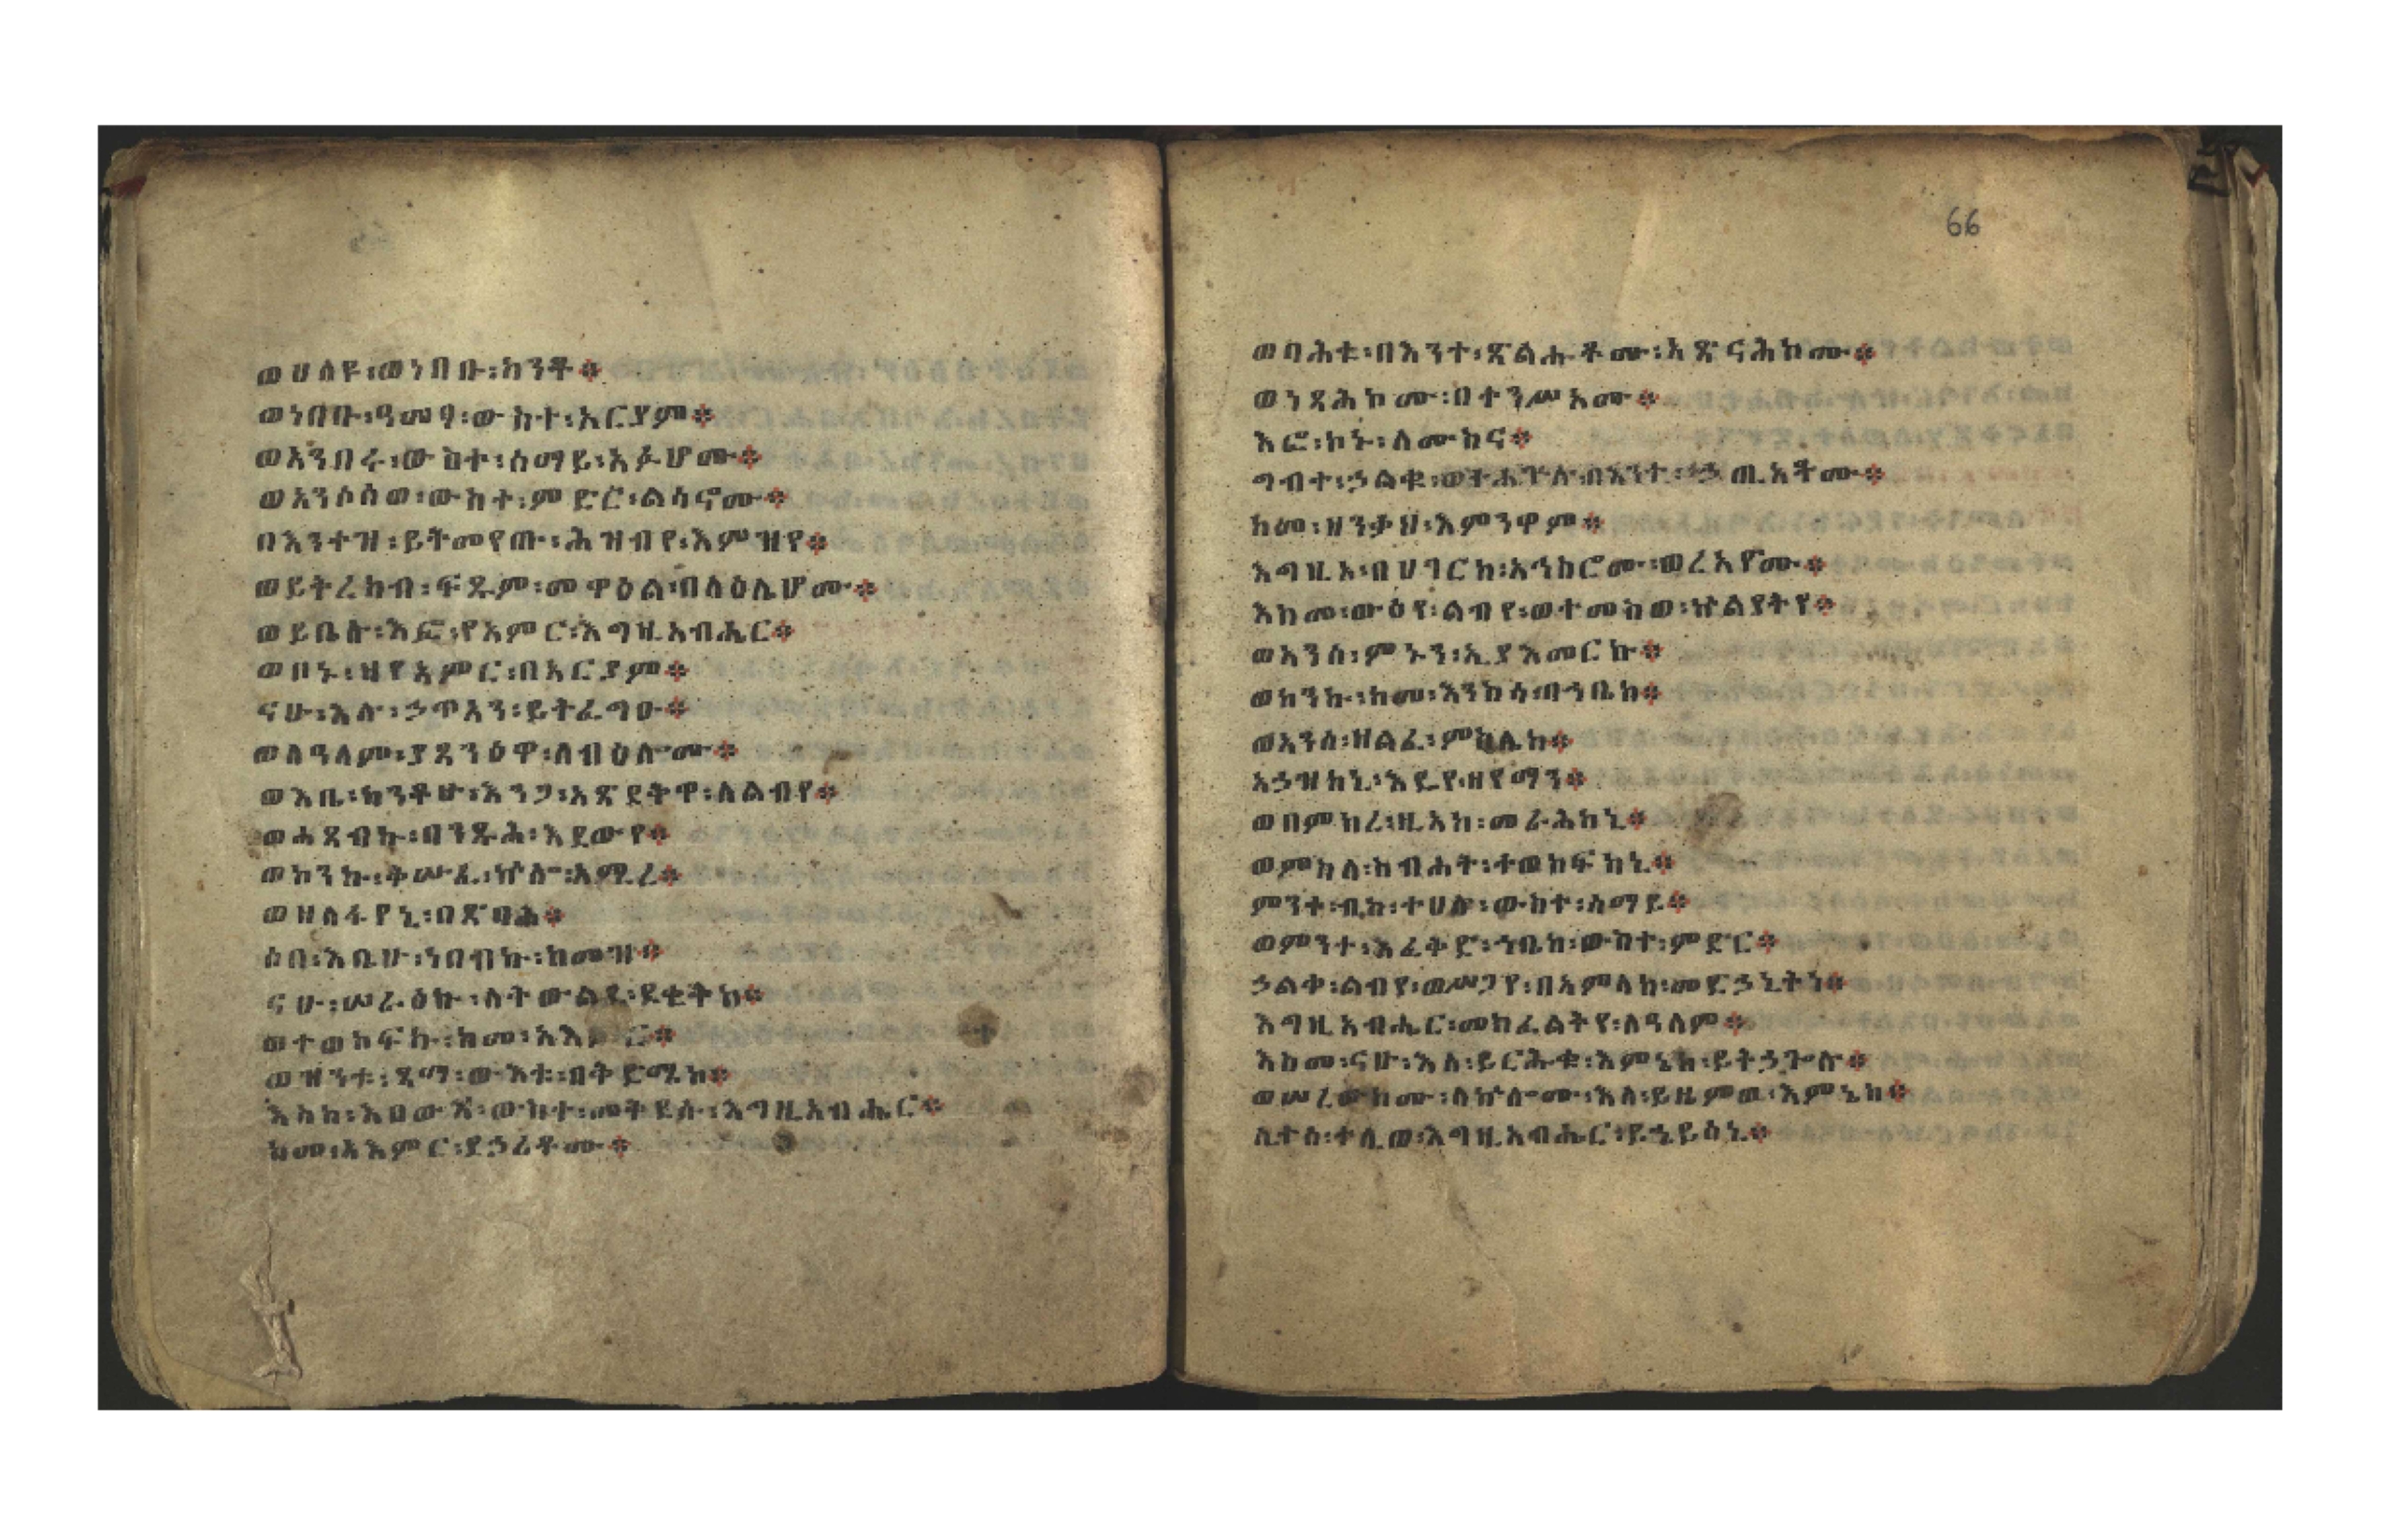 ወሀለዩ፡ወነበቡ፡ከንቶ።
ወነበቡ፡ዓመፃ፡ውስተ፡አርያም።
ወአንበሩ፡ውስተ፡ሰማይ፡አፉሆሙ።
ወአንሶሰወ፡ውስተ፡ምድር፡ልሳኖሙ።
በእንተዝ፡ይትመየጡ፡ሕዝብየ፡እምዝየ።
ወይትረከብ፡ፍጹም፡መዋዕል፡በላዕሌሆሙ።
ወይቤሉ፡እፎ፡የአምር፡እግዚአብሔር።
ወቦኑ፡ዘየአምር፡በአርያም።
ናሁ፡እሉ፡ኃጥአን፡ይትፌግዑ።
ወለዓለም፡ያጸንዕዋ፡ለብዕሎሙ።
ወእቤ፡ከንቶሁ፡እንጋ፡አጽደቅዋ፡ለልብየ።
ወሐጸብኩ፡በንጹሕ፡እደውየ።
ወኮንኩ፡ቅሡፈ፡ኵሎ፡አሚረ።
ወዘለፋየኒ፡በጽባሕ።
ሶበ፡እቤሁ፡ነበብኩ፡ከመዝ።
ናሁ፡ሠራዕኩ፡ለትውልደ፡ደቂቅከ።
ወተወከፍኩ፡ከመ፡አእምር።
ወዝንቱ፡ጻማ፡ውእቱ፡በቅድሜከ።
እስከ፡እበውእ፡ውስተ፡መቅደሱ፡እግዚአብሔር።
ከመ፡አእምር፡ደኃሪቶሙ።
66
ወባሕቱ፡በእንተ፡ጽልሑቶሙ፡አጽናሕኮሙ።
ወነጻሕኮሙ፡በተንሥኦሙ።
እፎ፡ኮኑ፡ለሙስና።
ግብተ፡ኃልቁ፡ወተሐጕሉ፡በእንተ፡ኃጢአቶሙ።
ከመ፡ዘንቃህ፡እምንዋም።
እግዚኦ፡በሀገርከ፡አኅስሮሙ፡ወረአዮሙ።
እስመ፡ውዕየ፡ልብየ፡ወተመስወ፡ኵልያትየ።
ወአንሰ፡ምኑን፡ኢያእመርኩ።
ወኮንኩ፡ከመ፡እንስሳ፡በኀቤከ።
ወአንሰ፡ዘልፈ፡ምስሌከ።
አኃዝከኒ፡እዴየ፡ዘየማን።
ወበምክረ፡ዚአከ፡መራሕከኒ።
ወምስለ፡ስብሐት፡ተወከፍከኒ።
ምንተ፡ብከ፡ተሀሉ፡ውስተ፡ሰማይ።
ወምንተ፡እፈቅድ፡ኀቤከ፡ውስተ፡ምድር።
ኃልቀ፡ልብየ፡ወሥጋየ፡በአምላከ፡መድኃኒትነ።
እግዚአብሔር፡መክፈልትየ፡ለዓለም።
እስመ፡ናሁ፡እለ፡ይርሕቁ፡እምኔከ፡ይትኃጐሉ።
ወሠረውኮሙ፡ለኵሎሙ፡እለ፡ይዜምወ፡እምኔከ።
ሊተሰ፡ተሊወ፡እግዚአብሔር፡ይኄይሰኒ።